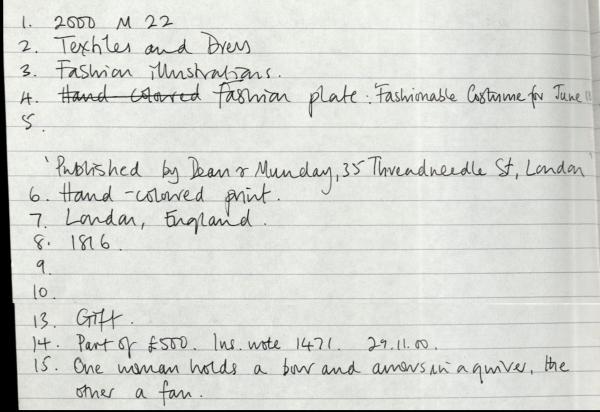 1. 2000 M 22
2. Textiles and Dress
3. Fashion illustrations.
4. Hand-coloured fashion plate: Fashionable Costume for June
5.
'Published by Dean & Munday, 35 Threadneedle St, London'
6. Hand-coloured print.
7. London, England.
8. 1816.
9.
10.
13. Gift.
14. Part of £500. Ins. note 1471. 29.11.00.
15. One woman holds a bow and arrows in a quiver, the
other a fan.